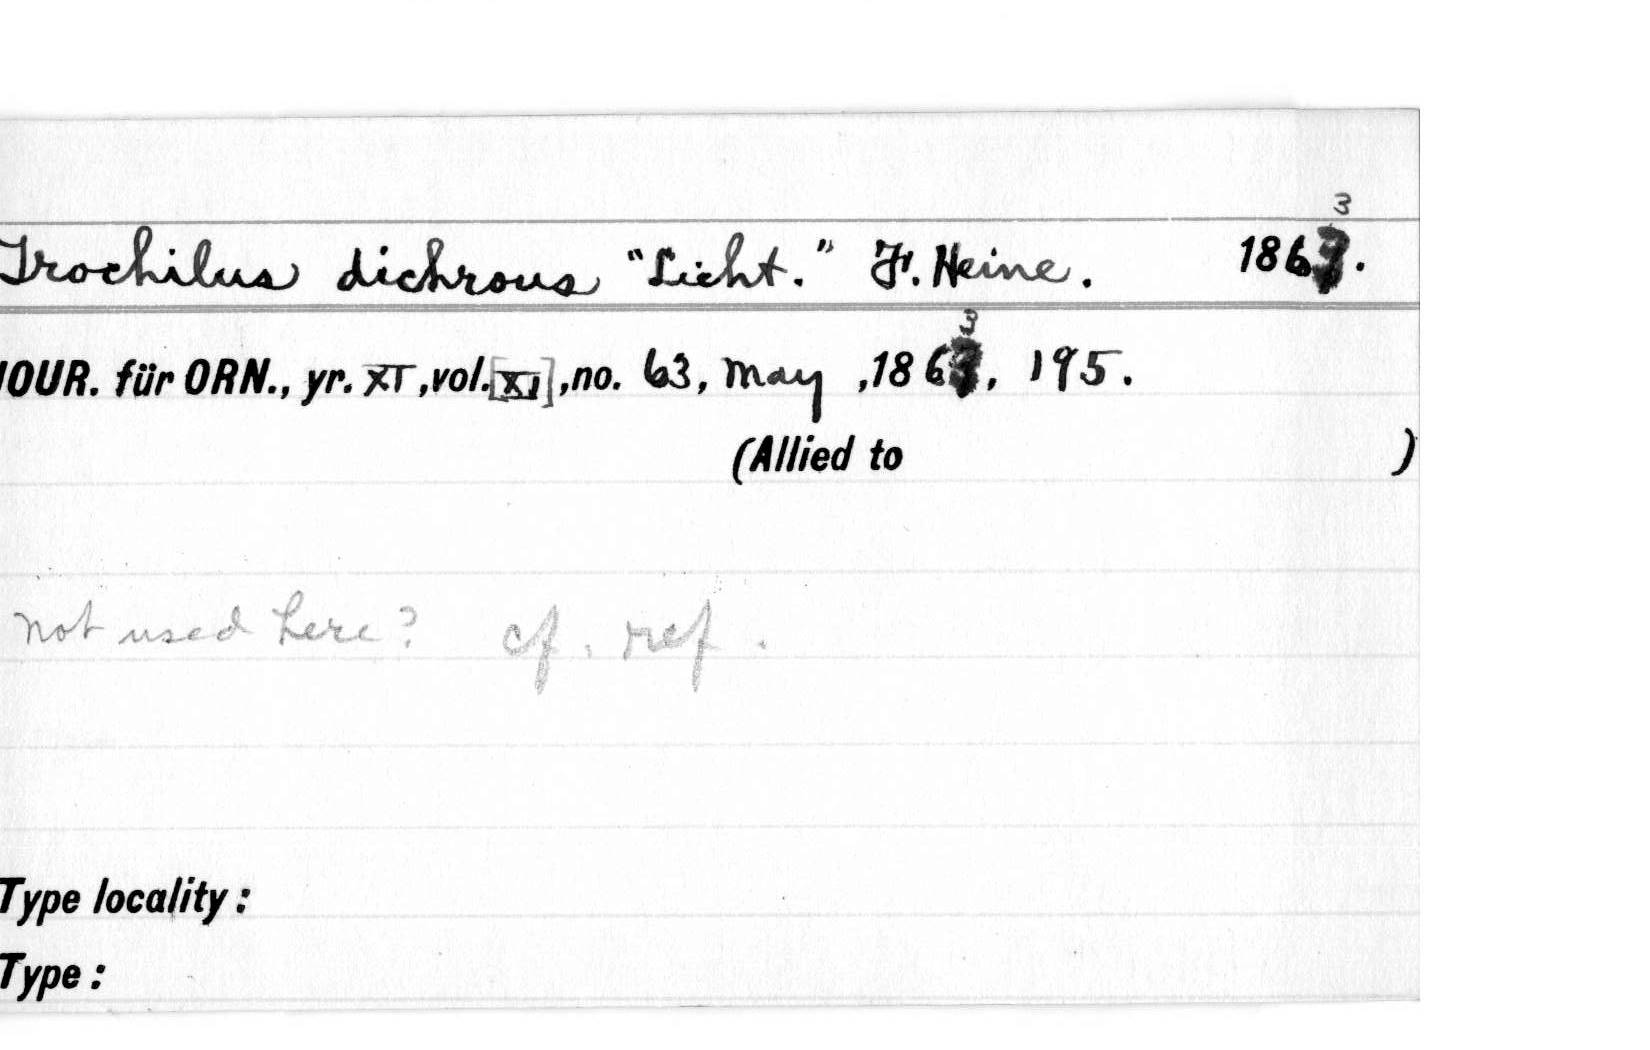 Trochilus dichrous "Licht." F. Heine. 1863.
JOUR. für ORN., yr. XI, vol. [XI], no. 63, May, 1863, 195.
(Allied to )
not used here? cf. ref.
Type locality:
Type: